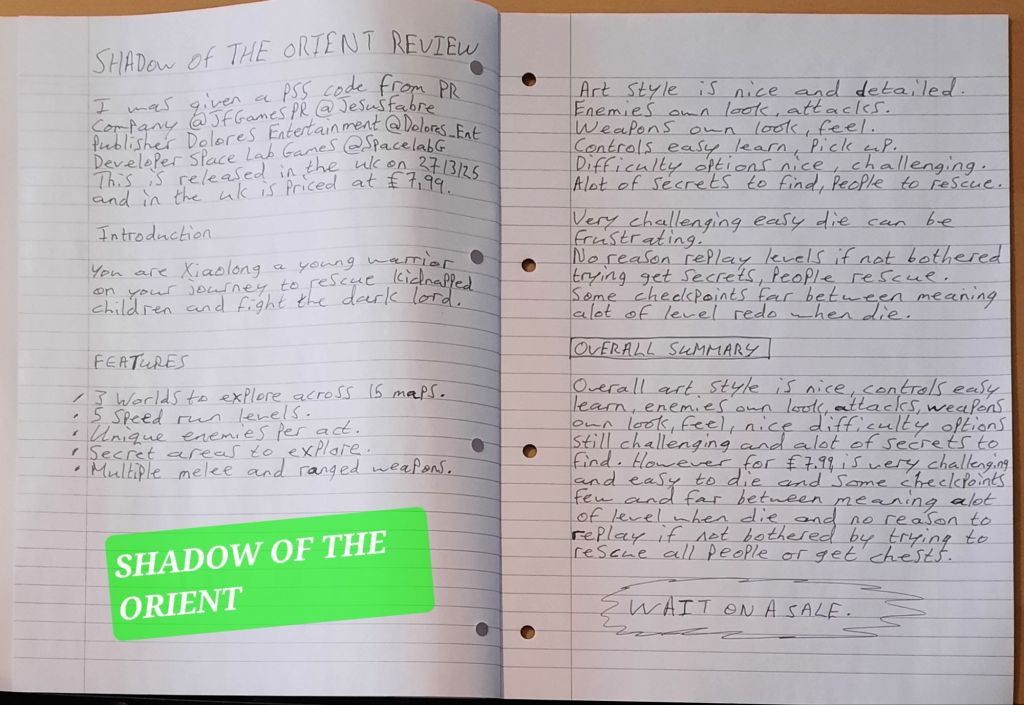 SHADOW OF THE ORIENT REVIEW
I was given a PS5 code from PR
Company @JfGamesPR @Jesusfabre
Publisher Dolores Entertainment @Dolores_Ent
Developer Space Lab Games @SpacelabG
This is released in the uk on 27/3/25
and in the uk is priced at £7.99.
Introduction
You are Xiaolong a young warrior
on your journey to rescue kidnapped
children and fight the dark lord.
FEATURES
• 3 Worlds to explore across 15 maps.
• 5 Speed run levels.
• Unique enemies per act.
• Secret areas to explore.
• Multiple melee and ranged weapons.
SHADOW OF THE
ORIENT
Art style is nice and detailed.
Enemies own look, attacks.
Weapons own look, feel.
Controls easy learn, pick up.
Difficulty options nice, challenging.
Alot of secrets to find, people to rescue.
Very challenging easy die can be
frustrating.
No reason replay levels if not bothered
trying get secrets, people rescue.
Some checkpoints far between meaning
alot of level redo when die.
OVERALL SUMMARY
Overall art style is nice, controls easy
learn, enemies own look, attacks, weapons
own look, feel, nice difficulty options
still challenging and alot of secrets to
find. However for £7.99 is very challenging
and easy to die and some checkpoints
few and far between meaning alot
of level when die and no reason to
replay if not bothered by trying to
rescue all people or get chests.
WAIT ON A SALE.